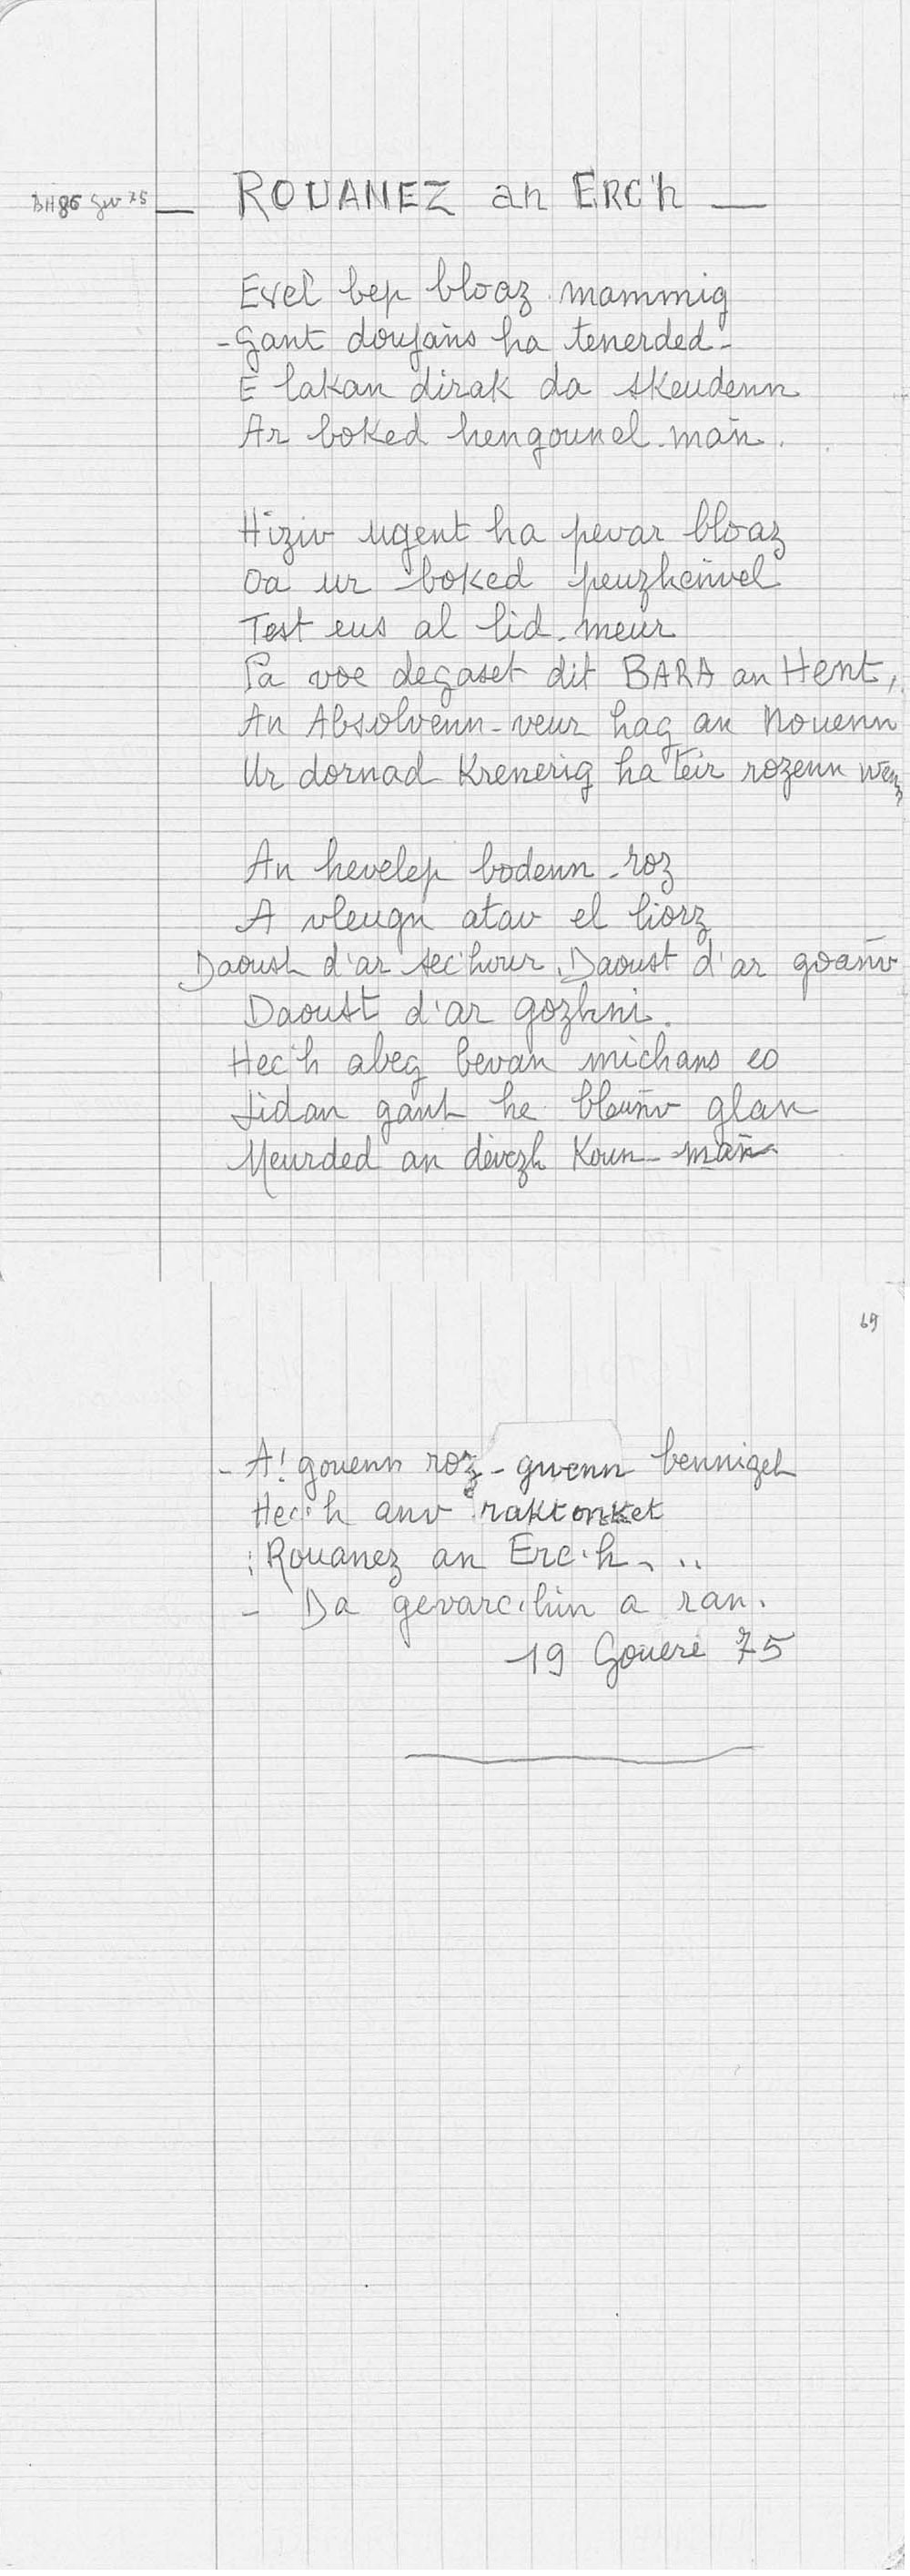 BH 86 Gw 75
— ROUANEZ an ERC'h —
Evel bep bloaz mammig
- Gant doujañs ha tenerded -
E lakan dirak da skeudenn
Ar boked hengounel-mañ.
Hiziv ugent ha pevar bloaz
Oa ur boked peuzheñvel
Test eus al lid-meur
Pa voe degaset dit BARA an Hent,
An Absolvenn-veur hag an Nouenn
Ur dornad Krenerig ha teir rozenn wenn
An hevelep bodenn-roz
A vleugn atav el liorz
Daoust d'ar sec'hour, Daoust d'ar goañv
Daoust d'ar gozhni.
Hec'h abeg bevan michans eo
Lidan gant he bleunv glan
Meurded an devezh Koun-mañ
69
- A! gouenn roz-gwenn benniget
Hec'h anv raktonket
: Rouanez an Erc'h...
- Da gevarc'hin a ran.
19 Gouere 75